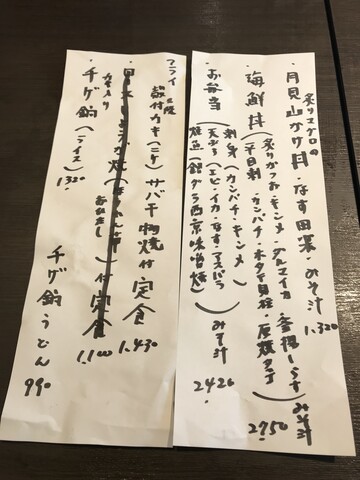 炙りマグロの
・月見山かけ丼・なす田楽・みそ汁 1,320
・海鮮丼(炙りかつお・キンメ・アルマイカ・釜揚しらす
平目刺・カンパチ・ホタテ貝柱・厚焼タマゴ)みそ汁 2,750
・お弁当
刺身・カンパチ・キンメ
天ぷら(エビ・イカ・なす・アスパラ
焼魚(銀ダラ西京味噌焼)みそ汁 2,420
フライ
三陸
殻付カキ(2ケ)サバ干物焼付定食 1,430
付定食 1,100
おひたし
カキ入り
・チゲ鍋(ライス) 1,320
チゲ鍋うどん 990